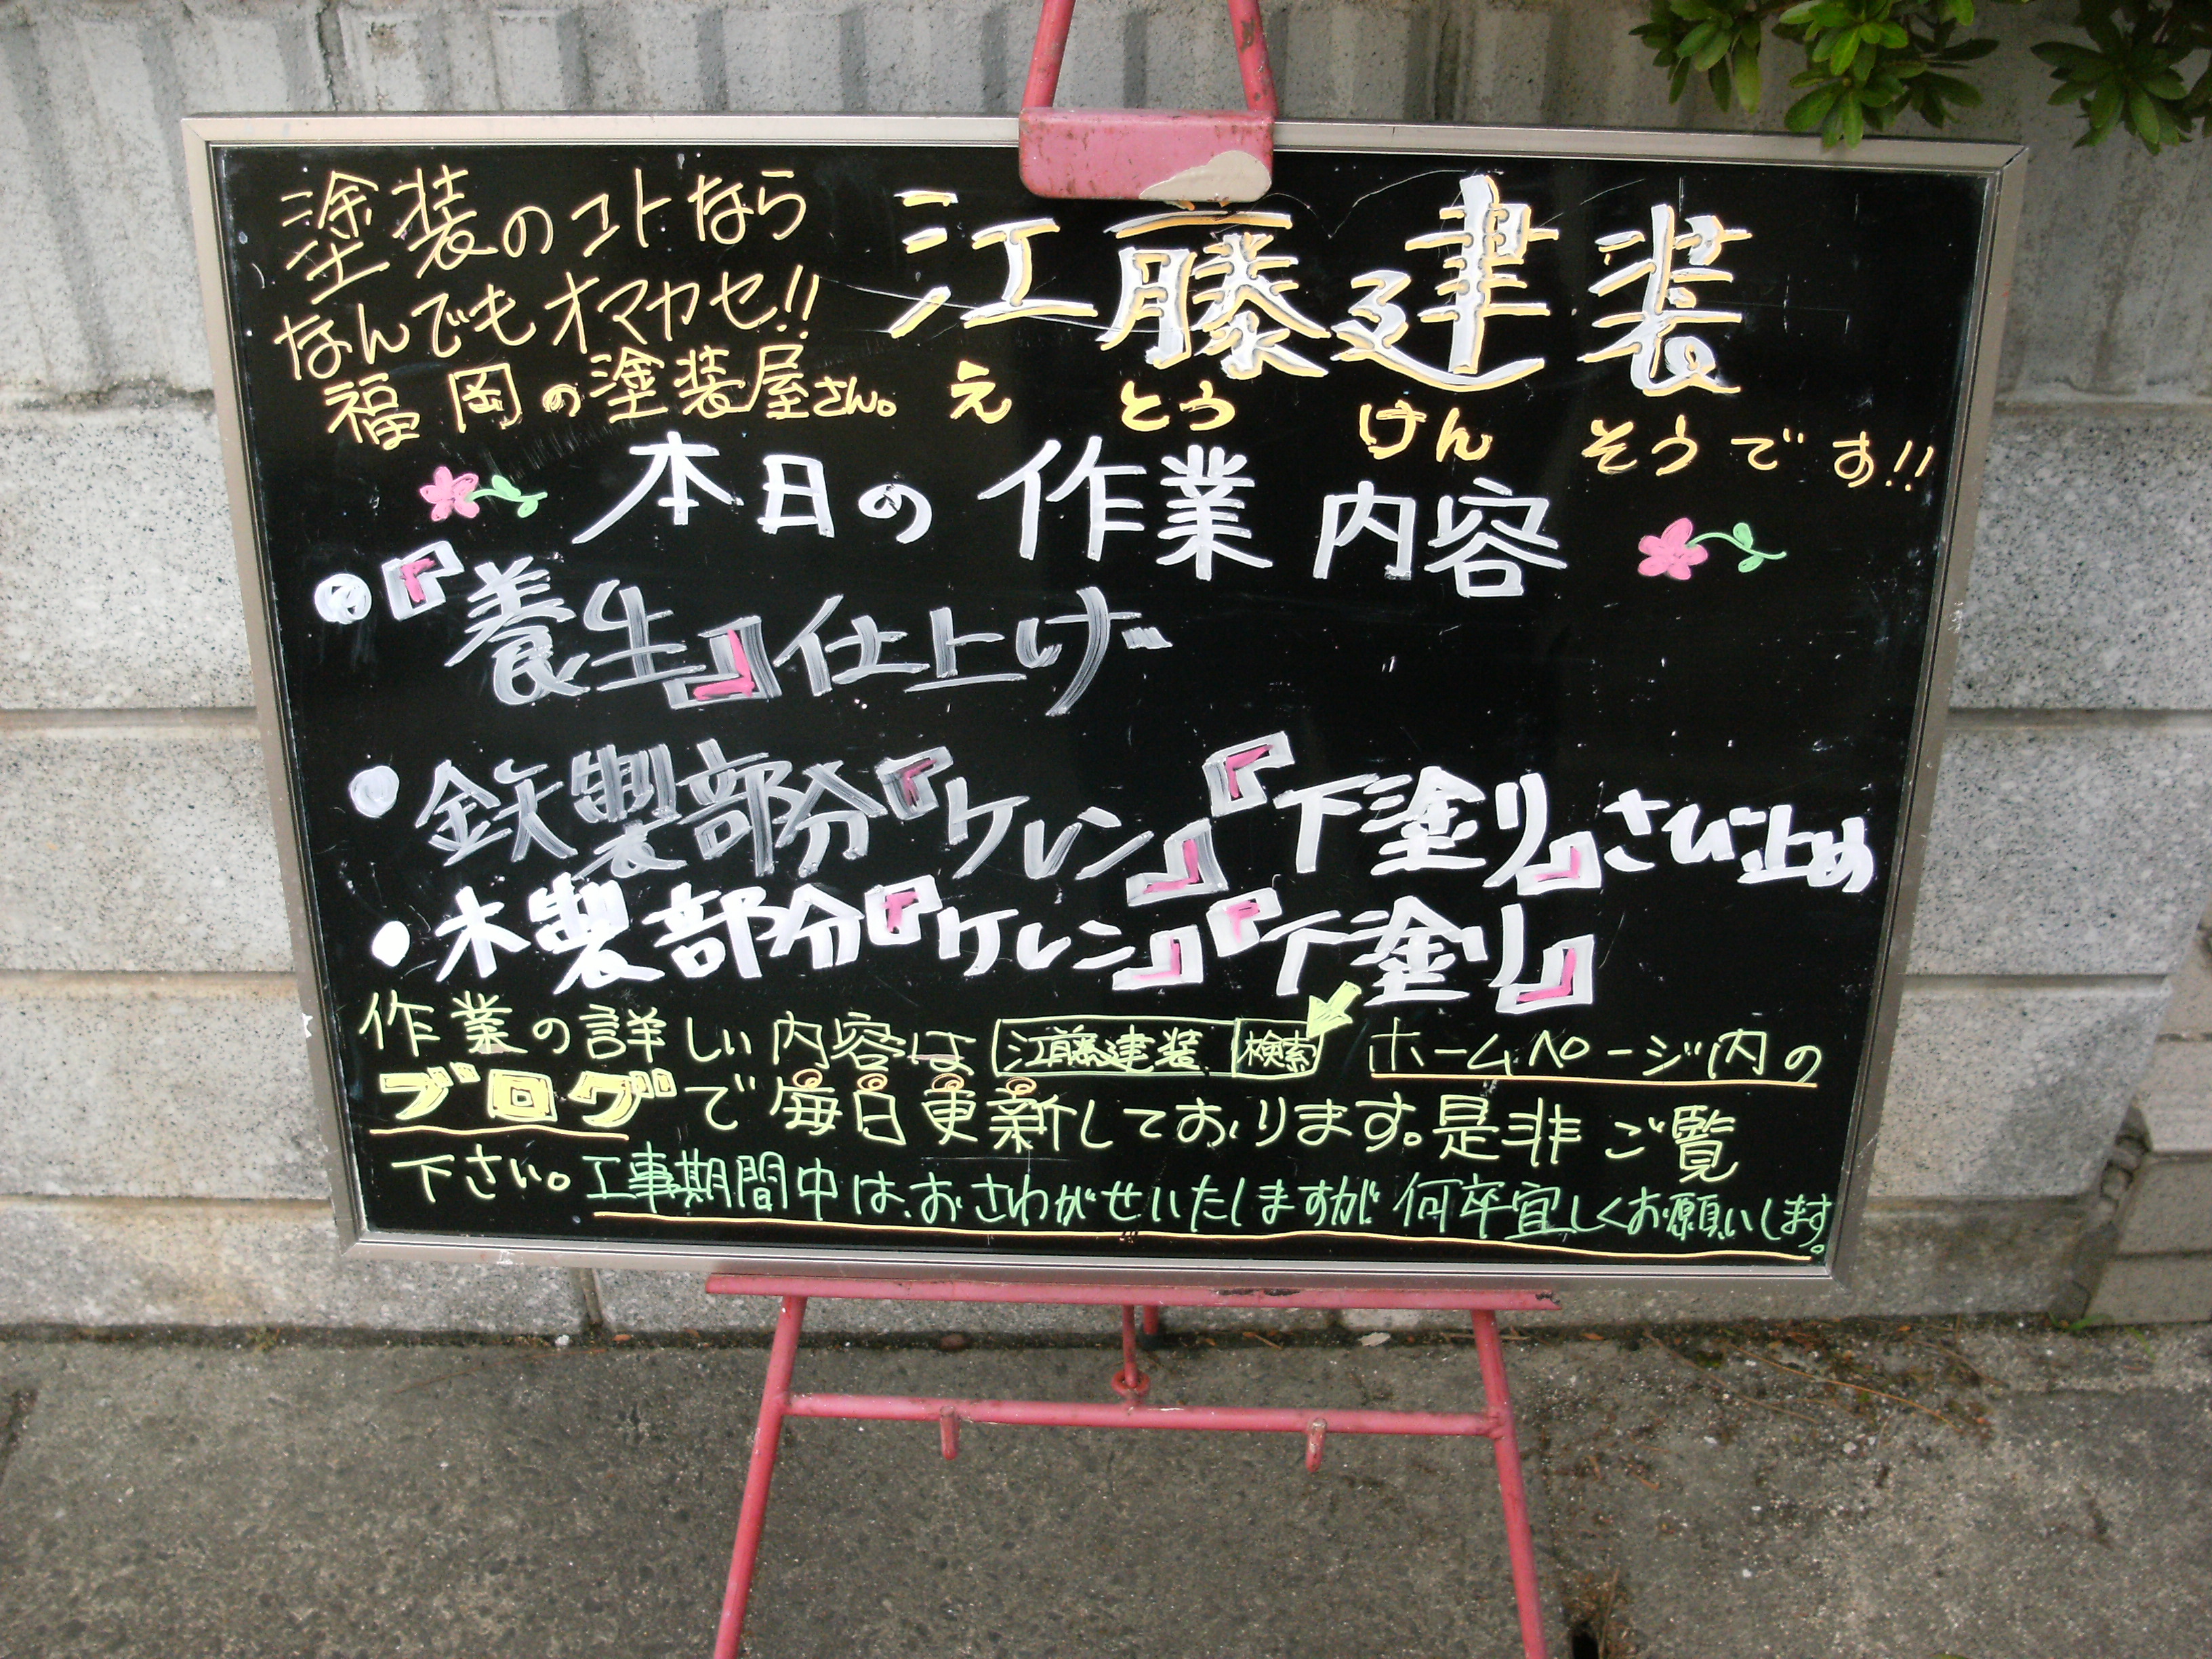 塗装のコトなら
なんでもオマカセ!!
福岡の塗装屋さん。
江藤建装
えとうけんそうです!!
本日の作業内容
●『養生』仕上げ
●鉄製部分『ケレン』『下塗り』さび止め
●木製部分『ケレン』『下塗り』
作業の詳しい内容は 江藤建装 検索 ホームページ内の
ブログで毎日更新しております。是非ご覧
下さい。工事期間中は、おさわがせいたしますが何卒宜しくお願いします。